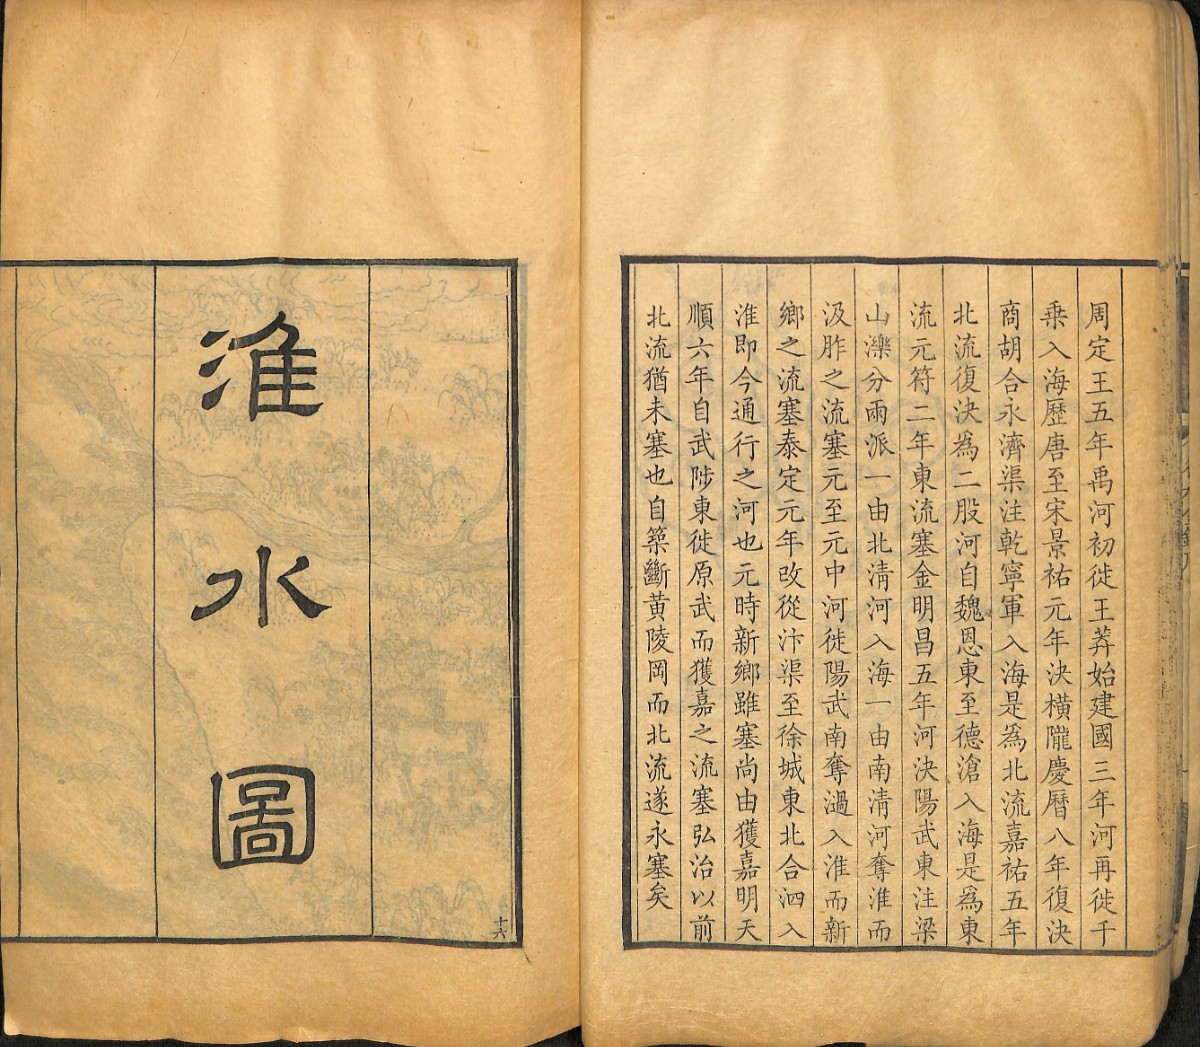 周定王五年禹河初徙王莽始建國三年河再徙千
乗入海歷唐至宋景祐元年決橫隴慶曆八年復決
商胡合永濟渠注乾寧軍入海是為北流嘉祐五年
北流復決為二股河自魏恩東至德滄入海是為東
流元符二年東流塞金明昌五年河決陽武東注梁
山濼分兩派一由北清河入海一由南清河奪淮而
汲胙之流塞元至元中河徙陽武南奪渦入淮而新
鄉之流塞泰定元年改從汴渠至徐城東北合泗入
淮即今通行之河也元時新鄉雖塞尚由獲嘉明天
順六年自武陟東徙原武而獲嘉之流塞弘治以前
北流猶未塞也自築斷黃陵岡而北流遂永塞矣
淮水圖
十六